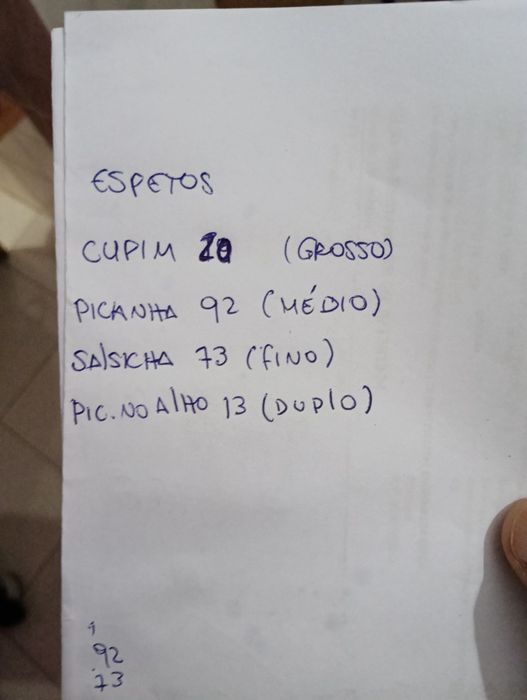 ESPETOS
CUPIM (GROSSO)
PICANHA 92 (MÉDIO)
SALSICHA 73 (FINO)
PIC. NO ALHO 13 (DUPLO)
1
92
73